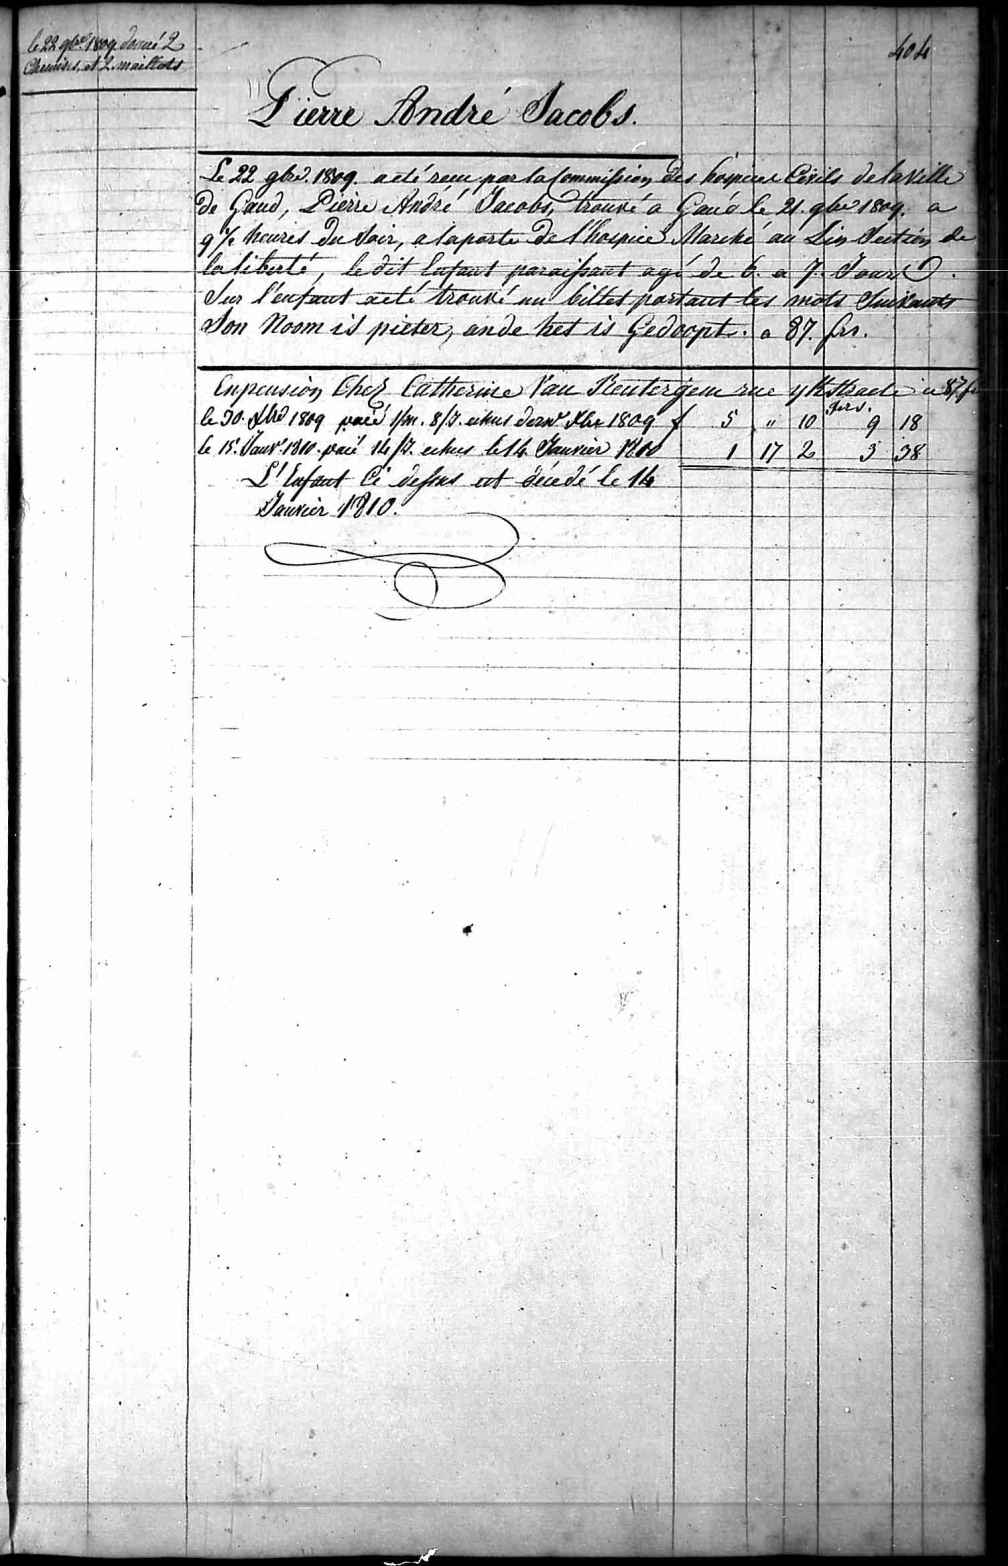 le 22 gbre 1809 donné 2
Chemises, et 2 maillots
404
Pierre André Jacobs.
Le 22 gbre. 1809. a eté recu par la Commission des hospices Civils de la Ville
de Gand, Pierre André Jacobs, trouvé a Gand le 21. gbre 1809. a
9 ½ heures du Soir, a la porte de l'hospice Marché au Lin Section de
la liberté, le dit Enfant paraissant agé de 6. a 7. Jours.
Sur l'enfant a eté trouvé un billet portant les mots Suivants
Son Noom is pieter, ende het is Gedoopt. a 87. frs.
En pension Chez Catherine Van Reutergem rue a 87 fr
le 30. Xbre 1809 paié 1/m. 8/J. echus dern. Xbre 1809 f 5 " 10 frs. 9 18
le 15. Janv. 1810. paié 14/J. echus le 14 Janvier 1810 1 17 2 3 38
L'Enfant Ci dessus est décédé le 14
Janvier 1810.